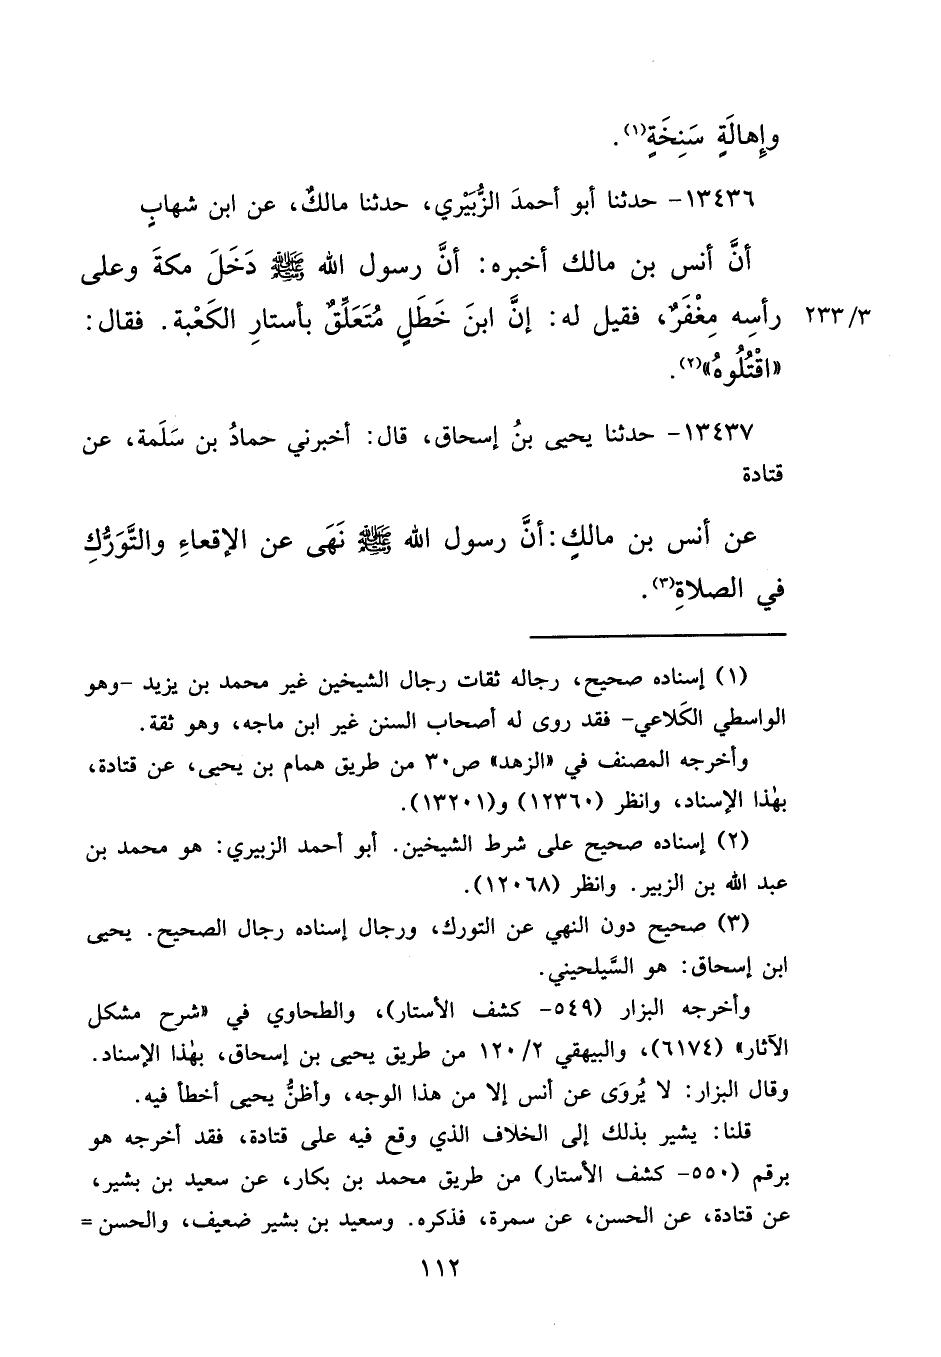 وإِهالَةٍ سَنِخَةٍ(١).
١٣٤٣٦- حدثنا أبو أحمدَ الزُّبَيْري، حدثنا مالكٌ، عن ابن شهابٍ
أنَّ أنس بن مالك أخبره: أنَّ رسول الله ﷺ دَخَلَ مكةَ وعلى
رأسِه مِغْفَرٌ، فقيل له: إنَّ ابنَ خَطَلٍ مُتَعَلِّقٌ بأستارِ الكَعْبة. فقال: ٢٣٣/٣
«اقْتُلُوهُ»(٢).
١٣٤٣٧- حدثنا يحيى بنُ إسحاق، قال: أخبرني حمادُ بن سَلَمة، عن
قتادة
عن أنس بن مالكٍ: أنَّ رسول الله ﷺ نَهَى عن الإقعاءِ والتَّوَرُّكِ
في الصلاةِ(٣).
(١) إسناده صحيح، رجاله ثقات رجال الشيخين غير محمد بن يزيد -وهو
الواسطي الكَلاعي- فقد روى له أصحاب السنن غير ابن ماجه، وهو ثقة.
وأخرجه المصنف في «الزهد» ص٣٠ من طريق همام بن يحيى، عن قتادة،
بهٰذا الإسناد، وانظر (١٢٣٦٠) و(١٣٢٠١).
(٢) إسناده صحيح على شرط الشيخين. أبو أحمد الزبيري: هو محمد بن
عبد الله بن الزبير. وانظر (١٢٠٦٨).
(٣) صحيح دون النهي عن التورك، ورجال إسناده رجال الصحيح. يحيى
ابن إسحاق: هو السَّيلحيني.
وأخرجه البزار (٥٤٩- كشف الأستار)، والطحاوي في «شرح مشكل
الآثار» (٦١٧٤)، والبيهقي ١٢٠/٢ من طريق يحيى بن إسحاق، بهٰذا الإسناد.
وقال البزار: لا يُروَى عن أنس إلا من هذا الوجه، وأظنُّ يحيى أخطأ فيه.
قلنا: يشير بذلك إلى الخلاف الذي وقع فيه على قتادة، فقد أخرجه هو
برقم (٥٥٠- كشف الأستار) من طريق محمد بن بكار، عن سعيد بن بشير،
عن قتادة، عن الحسن، عن سمرة، فذكره. وسعيد بن بشير ضعيف، والحسن =
١١٢